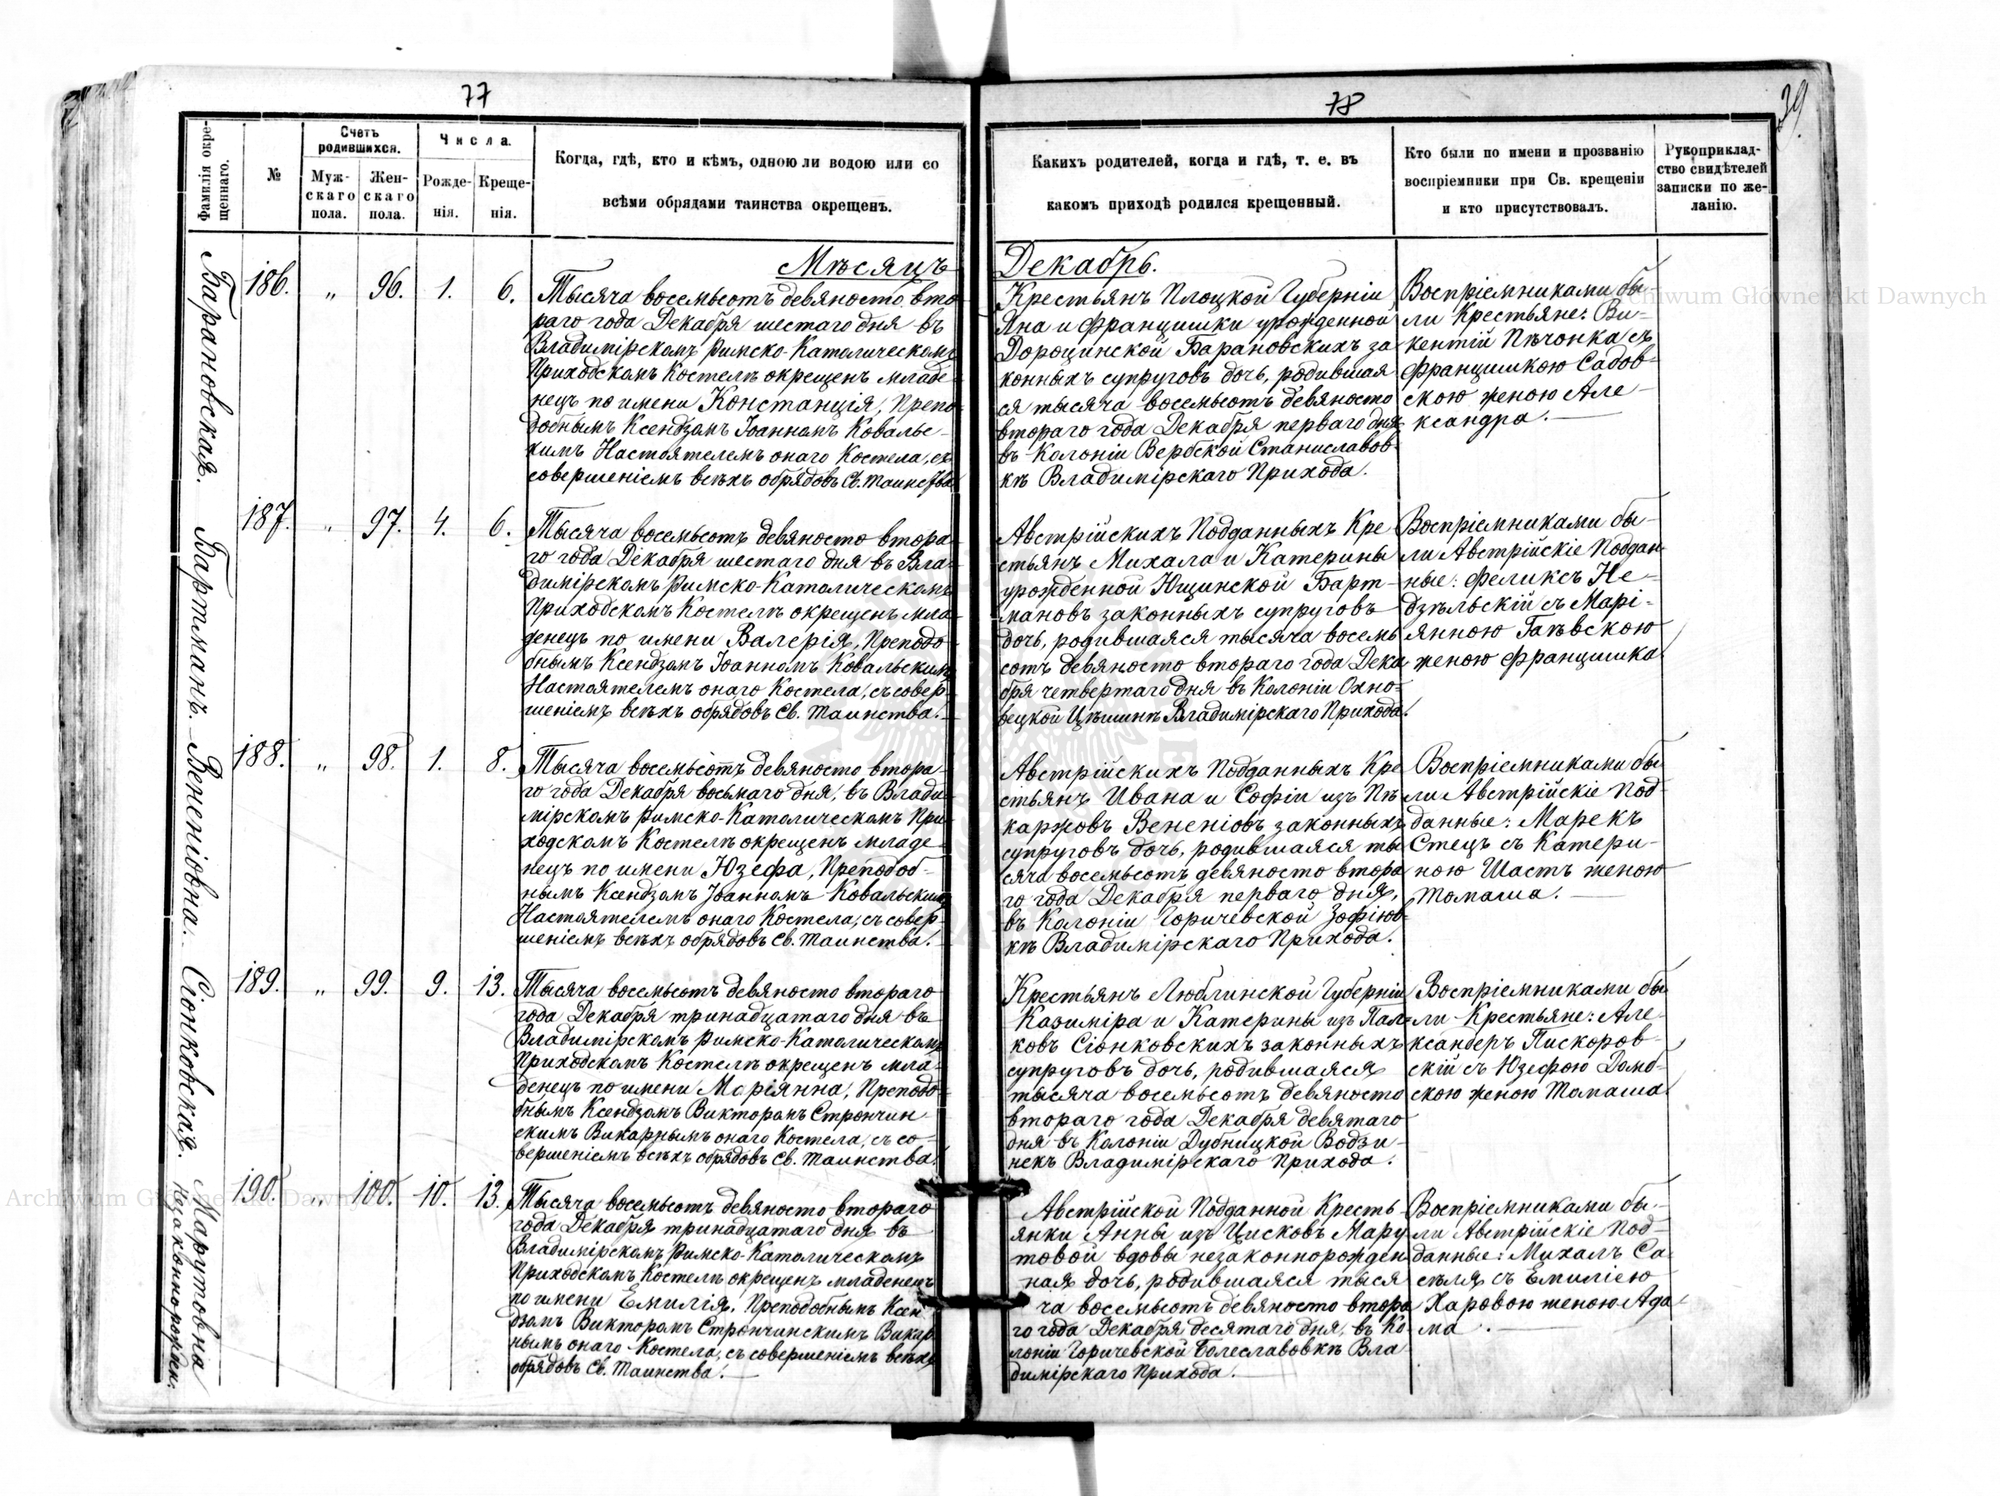 77
78
39.
Фамилія окре-
щеннаго.
№
Счетъ
родившихся.
Муж-
скаго
пола.
Жен-
скаго
пола.
Числа.
Рожде-
нія.
Креще-
нія.
Когда, гдѣ, кто и кѣмъ, одною ли водою или со
всѣми обрядами таинства окрещенъ.
Какихъ родителей, когда и гдѣ, т. е. въ
какомъ приходѣ родился крещенный.
Кто были по имени и прозванію
воспріемники при Св. крещеніи
и кто присутствовалъ.
Рукоприклад-
ство свидѣтелей
записки по же-
ланію.
Мѣсяцъ
Декабрь.
Барановская.
186.
"
96.
1.
6.
Тысяча восемьсотъ девяносто вто-
раго года Декабря шестаго дня въ
Владимірскомъ Римско-Католическомъ
Приходскомъ Костелѣ окрещенъ младе-
нецъ по имени Констанція, Препо-
добнымъ Ксендзомъ Іоанномъ Ковальс-
кимъ Настоятелемъ онаго Костела, съ
совершеніемъ всѣхъ обрядовъ Св. Таинства
Крестьянъ Плоцкой Губерніи
Яна и Францишки урожденной
Дороцинской Барановскихъ за
конныхъ супруговъ дочь, родившая
ся тысяча восемьсотъ девяносто
втораго года Декабря перваго дня
въ Колоніи Вербской Станиславов
кѣ Владимірскаго Прихода.
Воспріемниками бы-
ли Крестьяне: Ви-
кентій Пѣчонка съ
Францишкою Садов-
скою женою Але-
ксандра.
Бартманъ.
187.
"
97.
4.
6.
Тысяча восемьсотъ девяносто втора-
го года Декабря шестаго дня въ Вла-
димірскомъ Римско-Католическомъ
Приходскомъ Костелѣ окрещенъ мла-
денецъ по имени Валерія, Преподо-
бнымъ Ксендзомъ Іоанномъ Ковальскимъ
Настоятелемъ онаго Костела, съ совер-
шеніемъ всѣхъ обрядовъ Св. Таинства.
Австрійскихъ Подданныхъ Кре
стьянъ Михала и Катерины
урожденной Ющинской Барт-
мановъ законныхъ супруговъ
дочь, родившаяся тысяча восемь
сотъ девяносто втораго года Дека
бря четвертаго дня въ Колоніи Охно-
вецкой Цѣшинѣ Владимірскаго Прихода.
Воспріемниками бы-
ли Австрійскіе Поддан-
ные: Феликсъ Не-
дзѣльскій съ Марі-
янною Гаѣвскою
женою Францишка
Вененіовна.
188.
"
98.
1.
8.
Тысяча восемьсотъ девяносто втора-
го года Декабря восьмаго дня, въ Влади-
мірскомъ Римско-Католическомъ При-
ходскомъ Костелѣ окрещенъ младе-
нецъ по имени Юзефа, Преподоб-
нымъ Ксендзомъ Іоанномъ Ковальскимъ
Настоятелемъ онаго Костела, съ совер-
шеніемъ всѣхъ обрядовъ Св. Таинства.
Австрійскихъ Подданныхъ Кре
стьянъ Ивана и Софіи изъ Пѣ
каржовъ Вененіовъ законныхъ
супруговъ дочь, родившаяся ты
сяча восемьсотъ девяносто втора
го года Декабря перваго дня,
въ Колоніи Горичевской Зофіюв-
кѣ Владимірскаго Прихода.
Воспріемниками бы
ли Австрійскіе Под-
данные: Марекъ
Стецъ съ Катери-
ною Шастъ женою
Томаша.
Сіонковская.
189.
"
99.
9.
13.
Тысяча восемьсотъ девяносто втораго
года Декабря тринадцатаго дня въ
Владимірскомъ Римско-Католическомъ
Приходскомъ Костелѣ окрещенъ мла-
денецъ по имени Маріянна, Преподо-
бнымъ Ксендзомъ Викторомъ Строчин
скимъ Викарнымъ онаго Костела, съ со-
вершеніемъ всѣхъ обрядовъ Св. Таинства.
Крестьянъ Люблинской Губерніи
Казиміра и Катерины изъ Пал-
ковъ Сіонковскихъ законныхъ
супруговъ дочь, родившаяся
тысяча восемьсотъ девяносто
втораго года Декабря девятаго
дня въ Колоніи Дубницкой Водзи-
некъ Владимірскаго Прихода.
Воспріемниками бы
ли Крестьяне: Але-
ксандеръ Пискоров-
скій съ Юзефою Домо-
скою женою Томаша
Марутовна
Незаконнорожден.
190.
"
100.
10.
13.
Тысяча восемьсотъ девяносто втораго
года Декабря тринадцатаго дня въ
Владимірскомъ Римско-Католическомъ
Приходскомъ Костелѣ окрещенъ младенецъ
по имени Емилія, Преподобнымъ Ксен
дзомъ Викторомъ Строчинскимъ Викар
нымъ онаго Костела, съ совершеніемъ всѣхъ
обрядовъ Св. Таинства.
Австрійской Подданной Кресть-
янки Анны изъ Цисковъ Мару
товой вдовы незаконнорожден
ная дочь, родившаяся тыся
ча восемьсотъ девяносто втора
го года Декабря десятаго дня, въ Ко-
лоніи Горичевской Болеславовкѣ Вла
димірскаго Прихода.
Воспріемниками бы-
ли Австрійскіе Под-
данные: Михалъ Са-
сѣля съ Емиліею
Харовою женою Ада
ма.
Archiwum Główne Akt Dawnych
Archiwum Główne Akt Dawnych